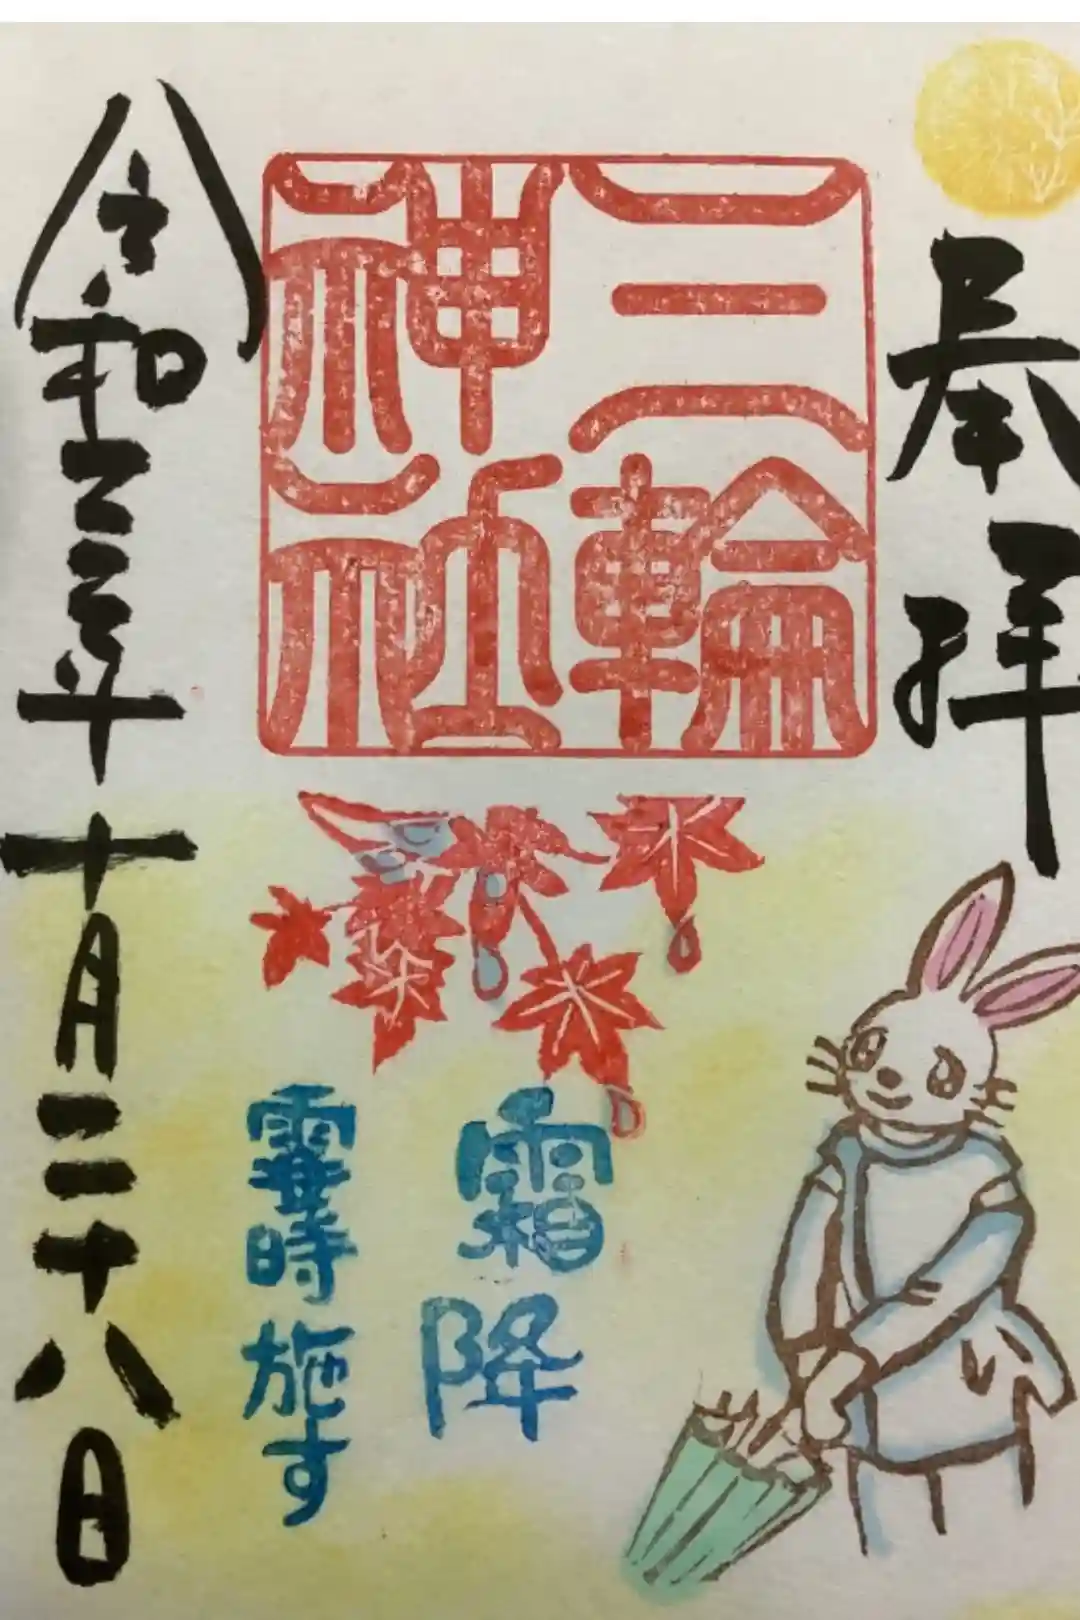 奉拝
三輪
神社
霜降
霎時施す
令和三年十月二十八日